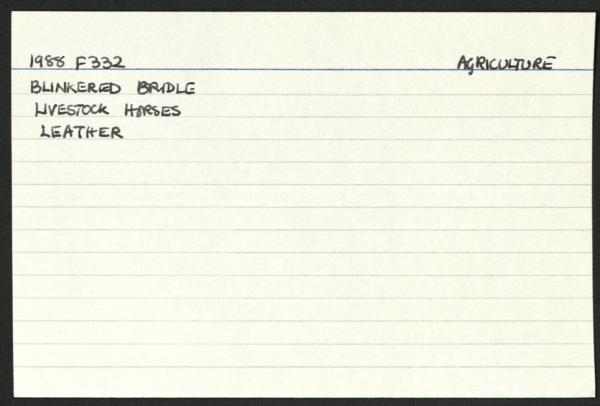 1988 F332 AGRICULTURE
BLINKERED BRIDLE
LIVESTOCK HORSES
LEATHER